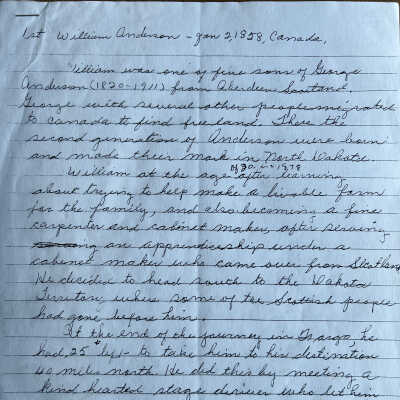 1st William Anderson - Jan 2, 1858, Canada.
William was one of five sons of George
Anderson (1820-1911) from Aberdeen Scotland.
George with several other people migrated
to Canada to find free land. There the
second generation of Anderson were born
and made their mark in North Dakota.
William at the age of 20 in 1878 after learning
about trying to help make a livable farm
for the family, and also becoming a fine
carpenter and cabinet maker, after serving
an apprenticeship under a
cabinet maker who came over from Scotland
He decided to head south to the Dakota
Territory, where some of the Scottish people
had gone before him.
At the end of the journey in Fargo, he
had .25 ¢ left - to take him to his destination
40 miles north. He did this by meeting a
kind hearted stage driver who let him